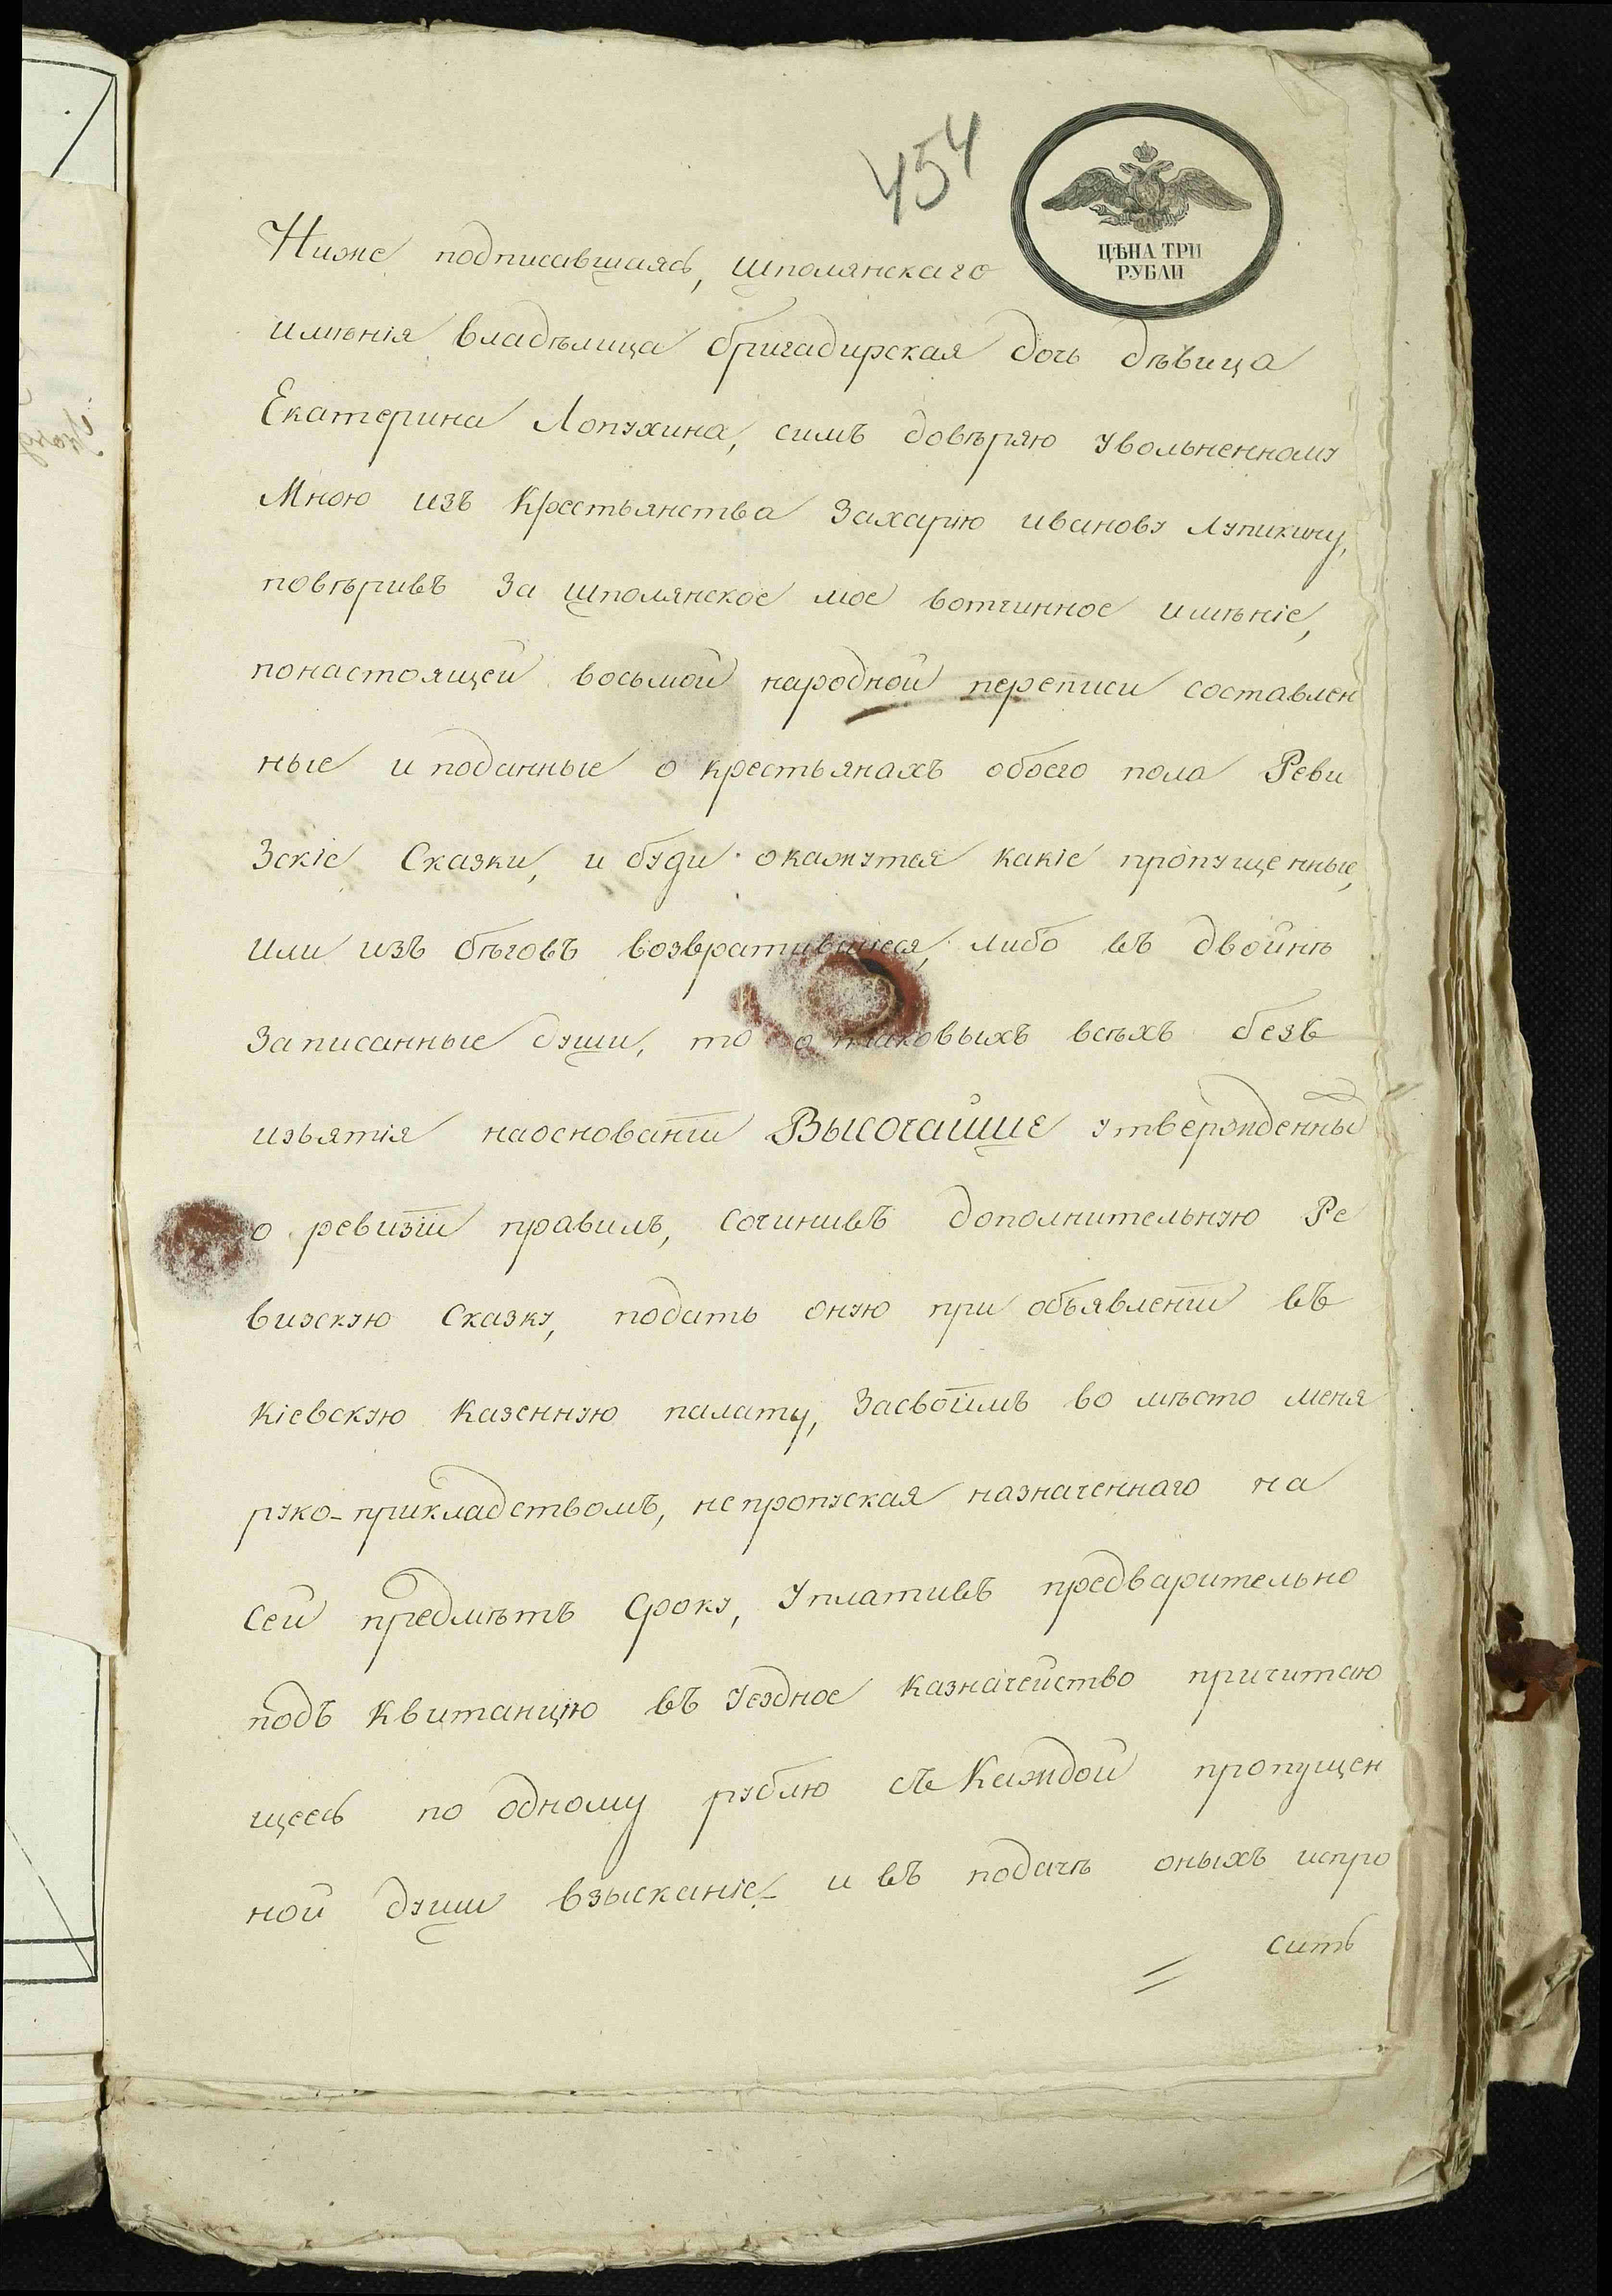 454
ЦѢНА ТРИ
РУБЛИ
Ниже подписавшаясь, шполянскаго
имѣнія владѣлица бригадирская дочь дѣвица
Екатерина Лопухина, симъ довѣряю увольненному
Мною изъ Крестьянства Захарію иванову Лупикичу,
повѣривъ За шполянское мое вотчинное имѣніе,
понастоящей восьмой народной переписи составлен
ные и поданные о крестьянахъ обоего пола Реви
Зскіе Сказки, и буди окажутся какіе пропущенные,
или изъ бѣговъ возвратившіеся, либо въ двойнѣ
Записанные души, то о таковыхъ всѣхъ безъ
изъятія наоснованіи Высочайше утвержденны
о ревизіи правилъ, сочинивъ дополнительную Ре
визскую Сказку, подать оную при объявленіи въ
Кіевскую Казенную палату, Засвоимъ во мѣсто меня
руко-прикладствомъ, непропуская назначеннаго на
сей предмѣтъ Сроку, Уплативъ предварительно
подъ Квитанцію въ Уездное Казначейство причитаю
щеесь по одному рублю съ Каждой пропущен
ной души взысканіе и въ подачѣ оныхъ испро
сить